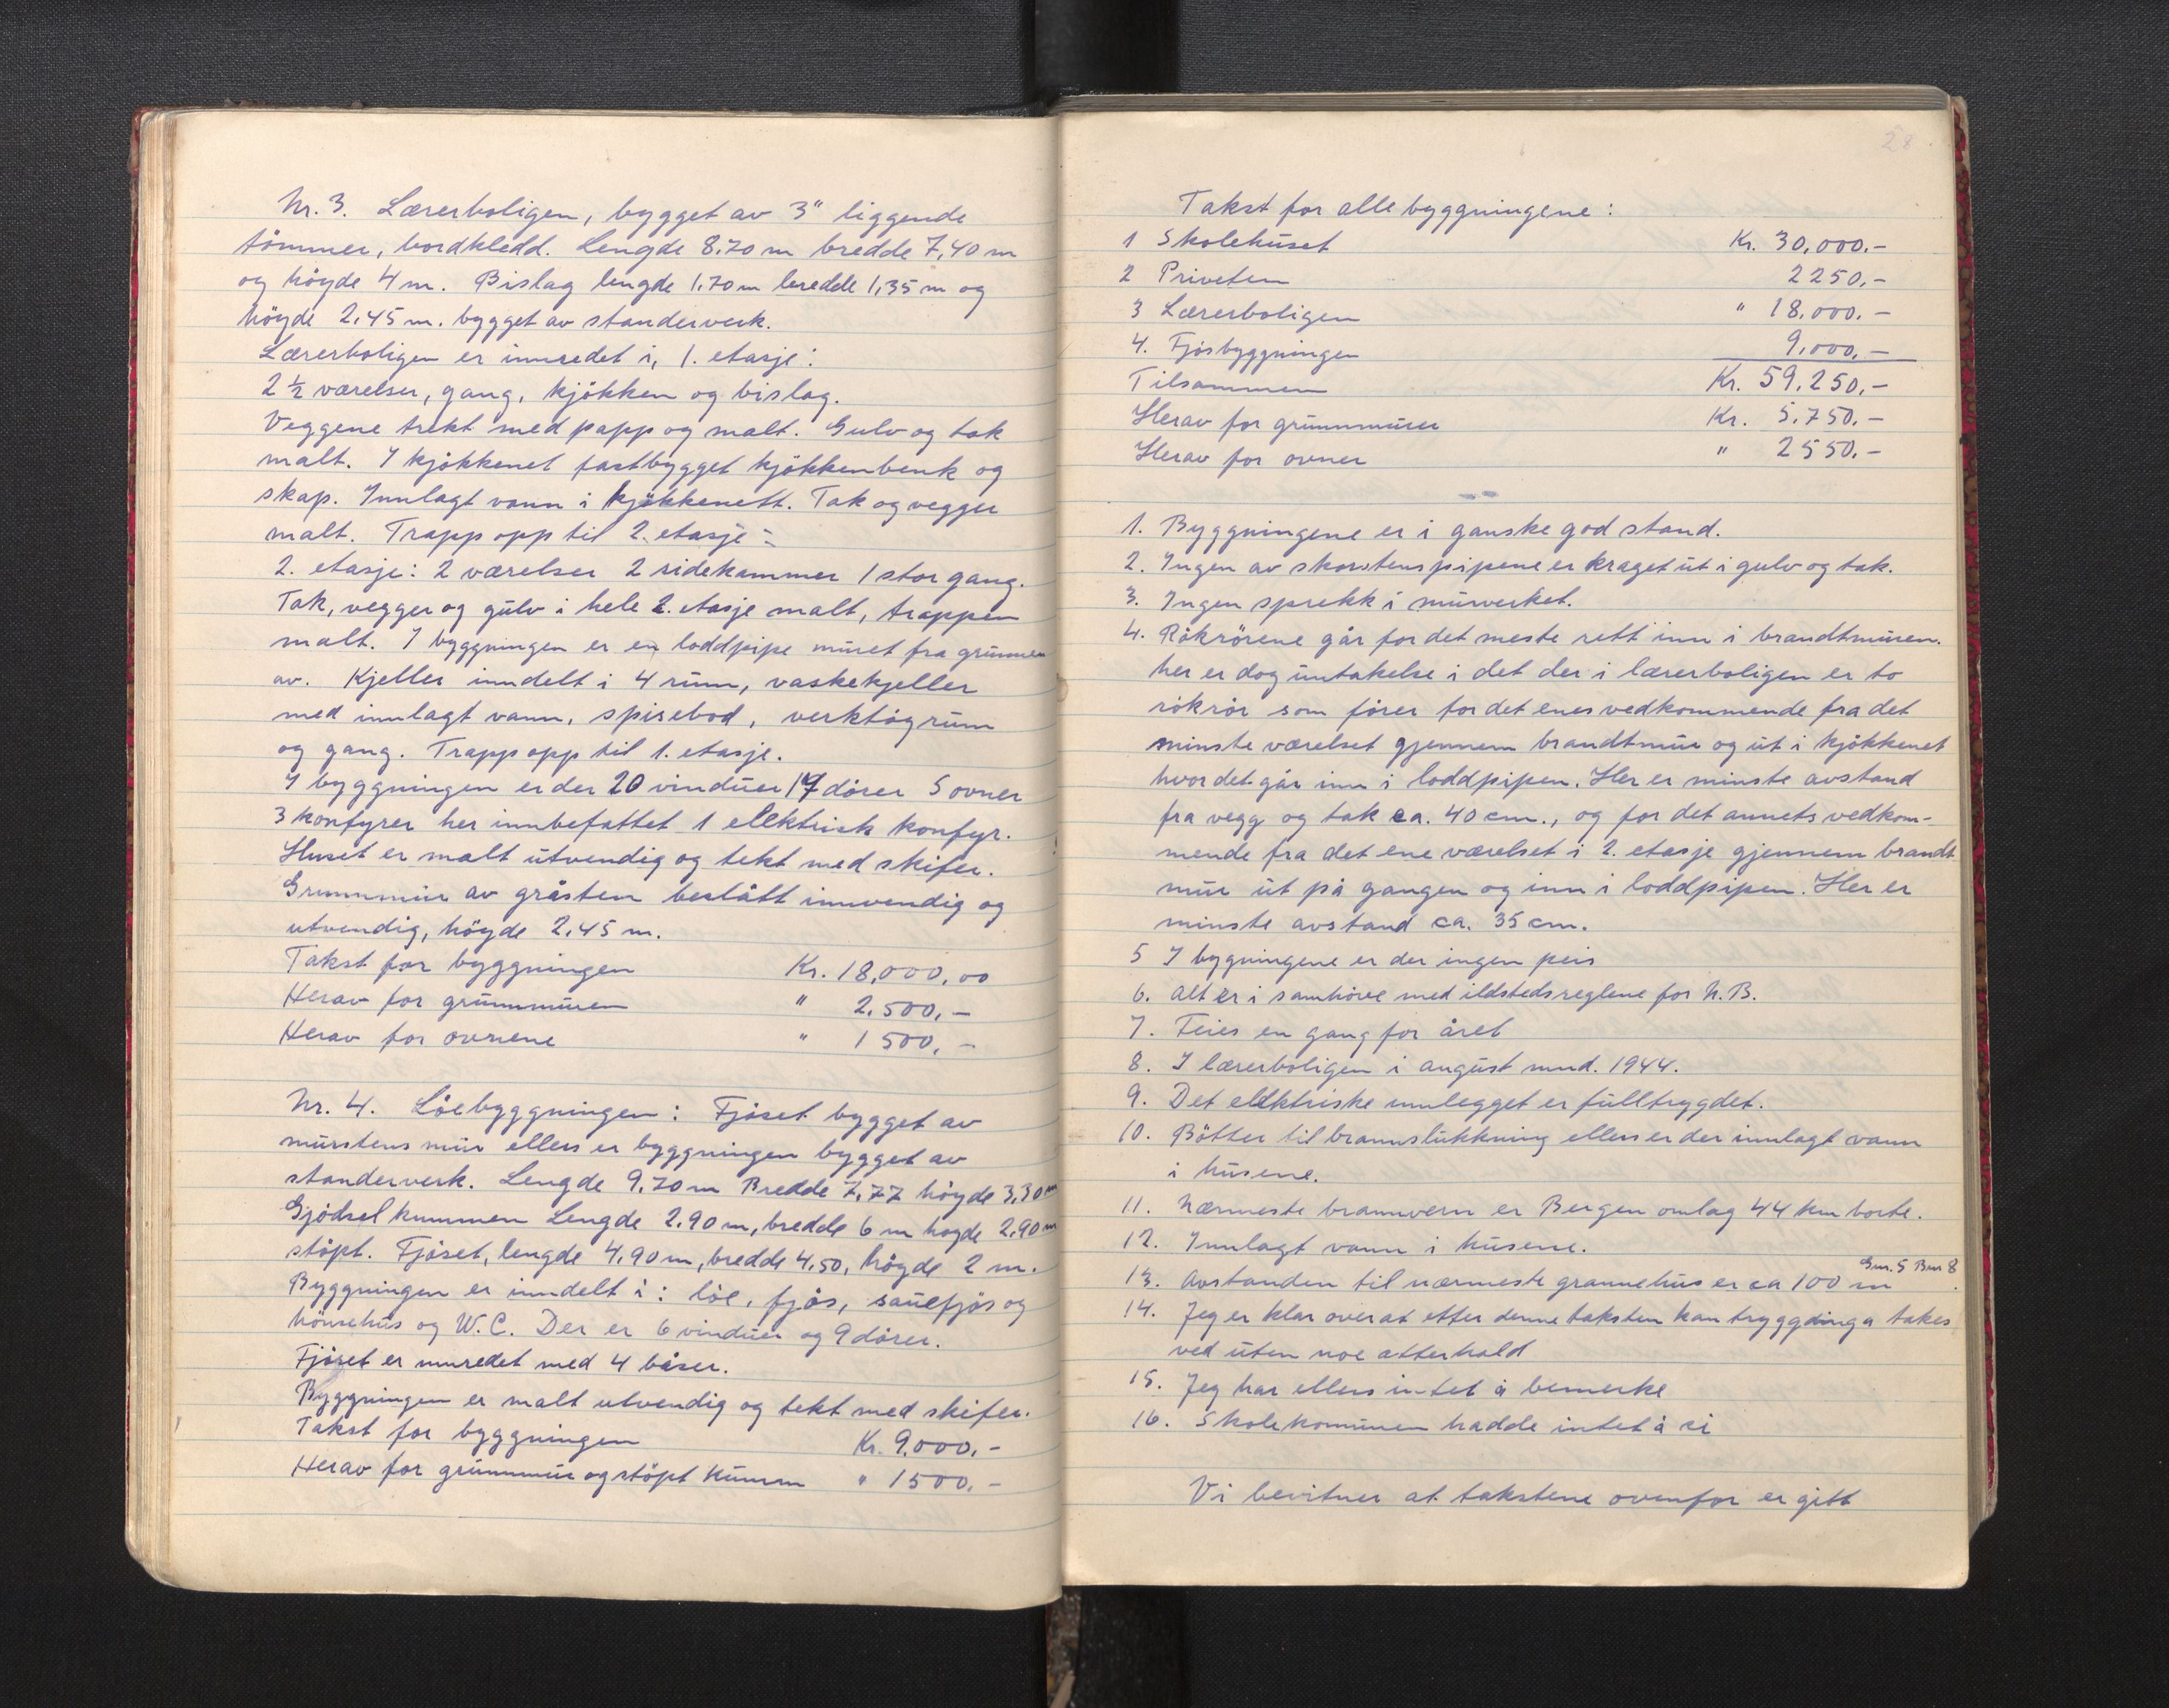 Nr. 3. Lærerboligen, bygget av 3" liggende
tömmer, bordkledd. Lengde 8.70 m bredde 7,40 m
og höyde 4 m. Bislag lengde 1,70 m bredde 1,35 m og
höyde 2.45 m. bygget av standerverk.
Lærerboligen er innredet i, 1. etasje:
2 ½ værelser, gang, kjökken og bislag.
Veggene trekt med papp og malt. Gulv og tak
malt. I kjökkenet fastbygget kjökkenbenk og
skap. Innlagt vann i kjökkenett. Tak og vegger
malt. Trapp opp til 2. etasje:
2. etasje: 2 værelser 2 sidekammer 1 stor gang.
Tak, vegger og gulv i hele 2. etasje malt, trappen
malt. I byggningen er en loddpipe muret fra grunnen
av. Kjeller inndelt i 4 rum, vaskekjeller
med innlagt vann, spisebod, verktögrum
og gang. Trapp opp til 1. etasje.
I byggningen er der 20 vinduer 19 dörer 5 ovner
3 konfyrer her innbefattet 1 elektrisk konfyr.
Huset er malt utvendig og tekt med skifer.
Grunnmur av gråsten beslått innvendig og
utvendig, höyde 2.45 m.
Takst for byggningen Kr. 18,000,00
Herav for grunnmuren " 2.500,-
Herav for ovnene " 1500,-
Nr. 4. Löebyggningen: Fjöset bygget av
murstens mur ellers er byggningen bygget av
standerverk. Lengde 9.70 m Bredde 7,77 höyde 3,30 m
Gjödselkummen Lengde 2.90 m, bredde 6 m hogde 2,90 m
stöpt. Fjöset, lengde 4.90 m, bredde 4.50, högde 2 m.
Byggningen er inndelt i: löe, fjös, sauefjös og
hönsehus og W.C. Der er 6 vinduer og 9 dörer.
Fjöset er innredet med 4 båser.
Byggningen er malt utvendig og tekt med skifer.
Takst for byggningen Kr. 9.000,-
Herav for grunnmur og stöpt kumm " 1500,-
28
Takst for alle byggningene:
1 Skolehuset Kr. 30,000.-
2 Priveten 2250,-
3 Lærerboligen " 18,000.-
4. Fjösbyggningen 9,000,-
Tilsammen Kr. 59,250,-
Herav for grunnmurer Kr. 5.750,-
Herav for ovner " 2550.-
1. Byggningene er i ganske god stand.
2. Ingen av skorstenspipene er kraget ut i gulv og tak.
3. Ingen sprekk i murverket.
4. Rökrörene går for det meste rett inn i brandtmuren.
her er dog untakelse i det der i lærerboligen er to
rökrör som förer for det enes vedkommende fra det
minste værelset gjennem brandtmur og ut i kjökkenet
hvor det går inn i loddpipen. Her er minste avstand
fra vegg og tak ca. 40 cm., og for det annets vedkom-
mende fra det ene værelset i 2. etasje gjennem brandt
mur ut på gangen og inn i loddpipen. Her er
minste avstand ca. 35 cm.
5 I bygningene er der ingen peis
6. Alt er i samhöve med ildstedsreglene for N.B.
7. Feies en gang for året
8. I lærerboligen i august mnd. 1944.
9. Det elektriske innlegget er fulltrygdet.
10. Bötter til brannslukkning ellers er der innlagt vann
i husene.
11. Nærmeste brannvern er Bergen omlag 44 km borte.
12. Innlagt vann i husene.
Gnr. 5 Bnr 8
13. Avstanden til nærmeste grannehus er ca 100 m.
14. Jeg er klar over at etter denne taksten kan tryggdinga takes
ved uten noe atterhald
15. Jeg har ellers intet å bemerke
16. Skolekommunen hadde intet å si
Vi bevitner at takstene ovenfor er gitt